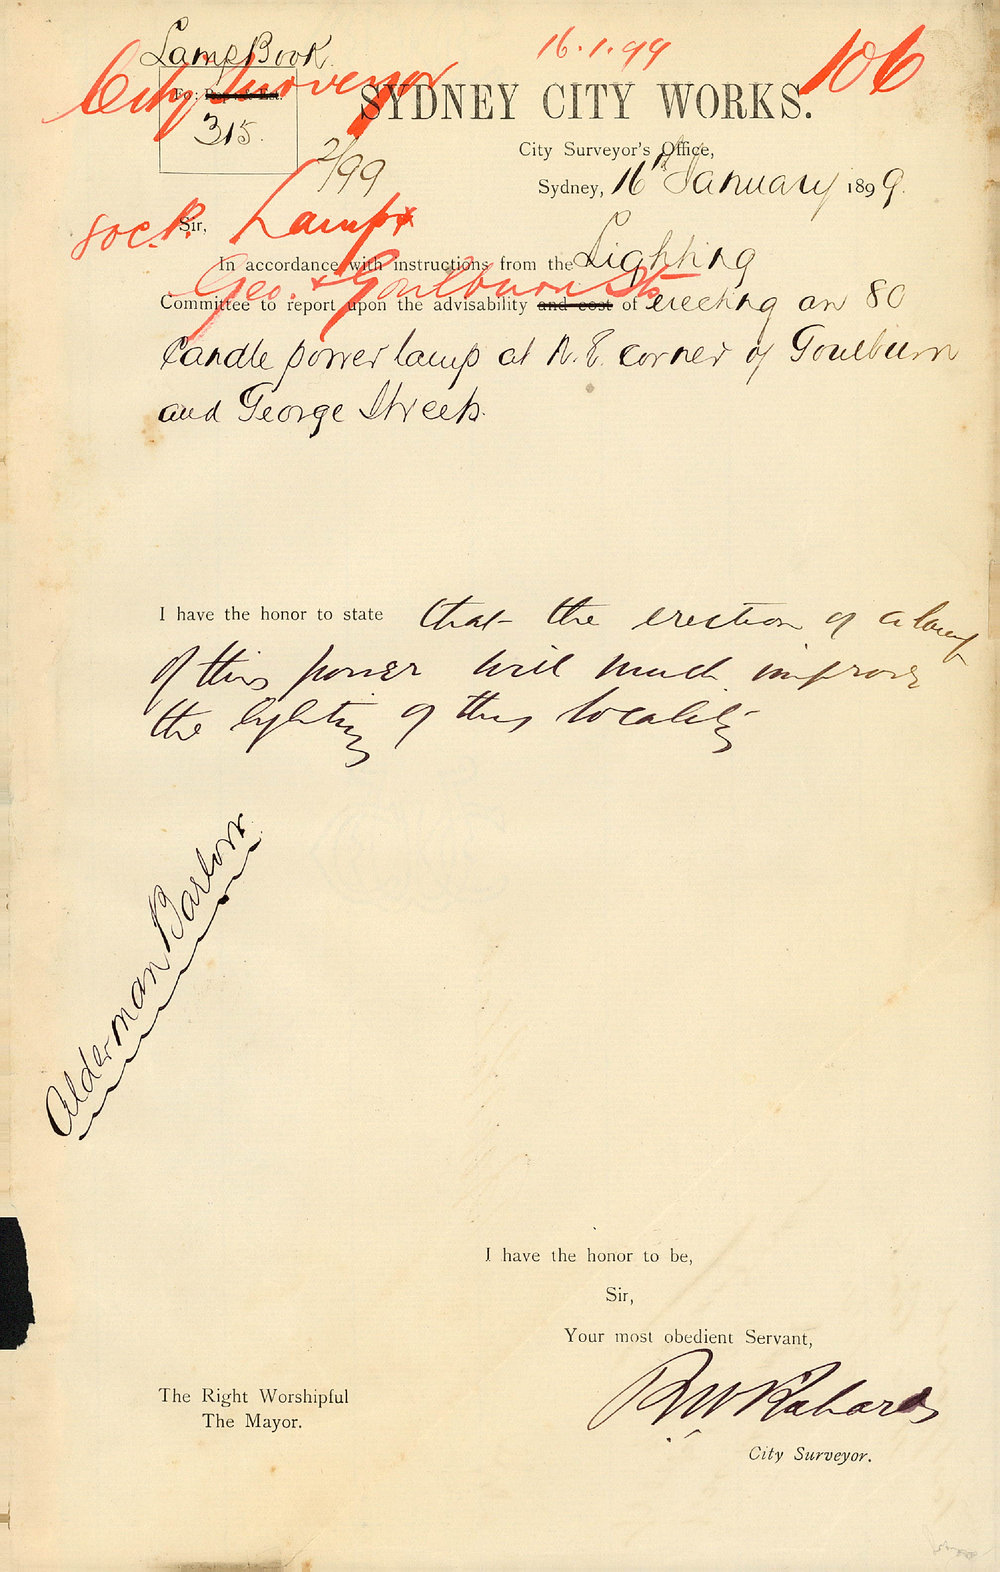 Lamp Book.
16.1.99
106
City Surveyor
Fo: Rep. & Est.
SYDNEY CITY WORKS.
315.
2/99
City Surveyor's Office,
Sydney, 16th January 1899.
80 c.P. Lamp
Sir,
In accordance with instructions from the Lighting
Geo. & Goulburn Sts
Committee to report upon the advisability and cost of erecting an 80
Candle power lamp at N.E. corner of Goulburn
and George Streets.
I have the honor to state that the erection of a lamp
of this power will much improve
the lighting of this locality
Alderman Barlow
I have the honor to be,
Sir,
Your most obedient Servant,
RW Richards
City Surveyor.
The Right Worshipful
The Mayor.